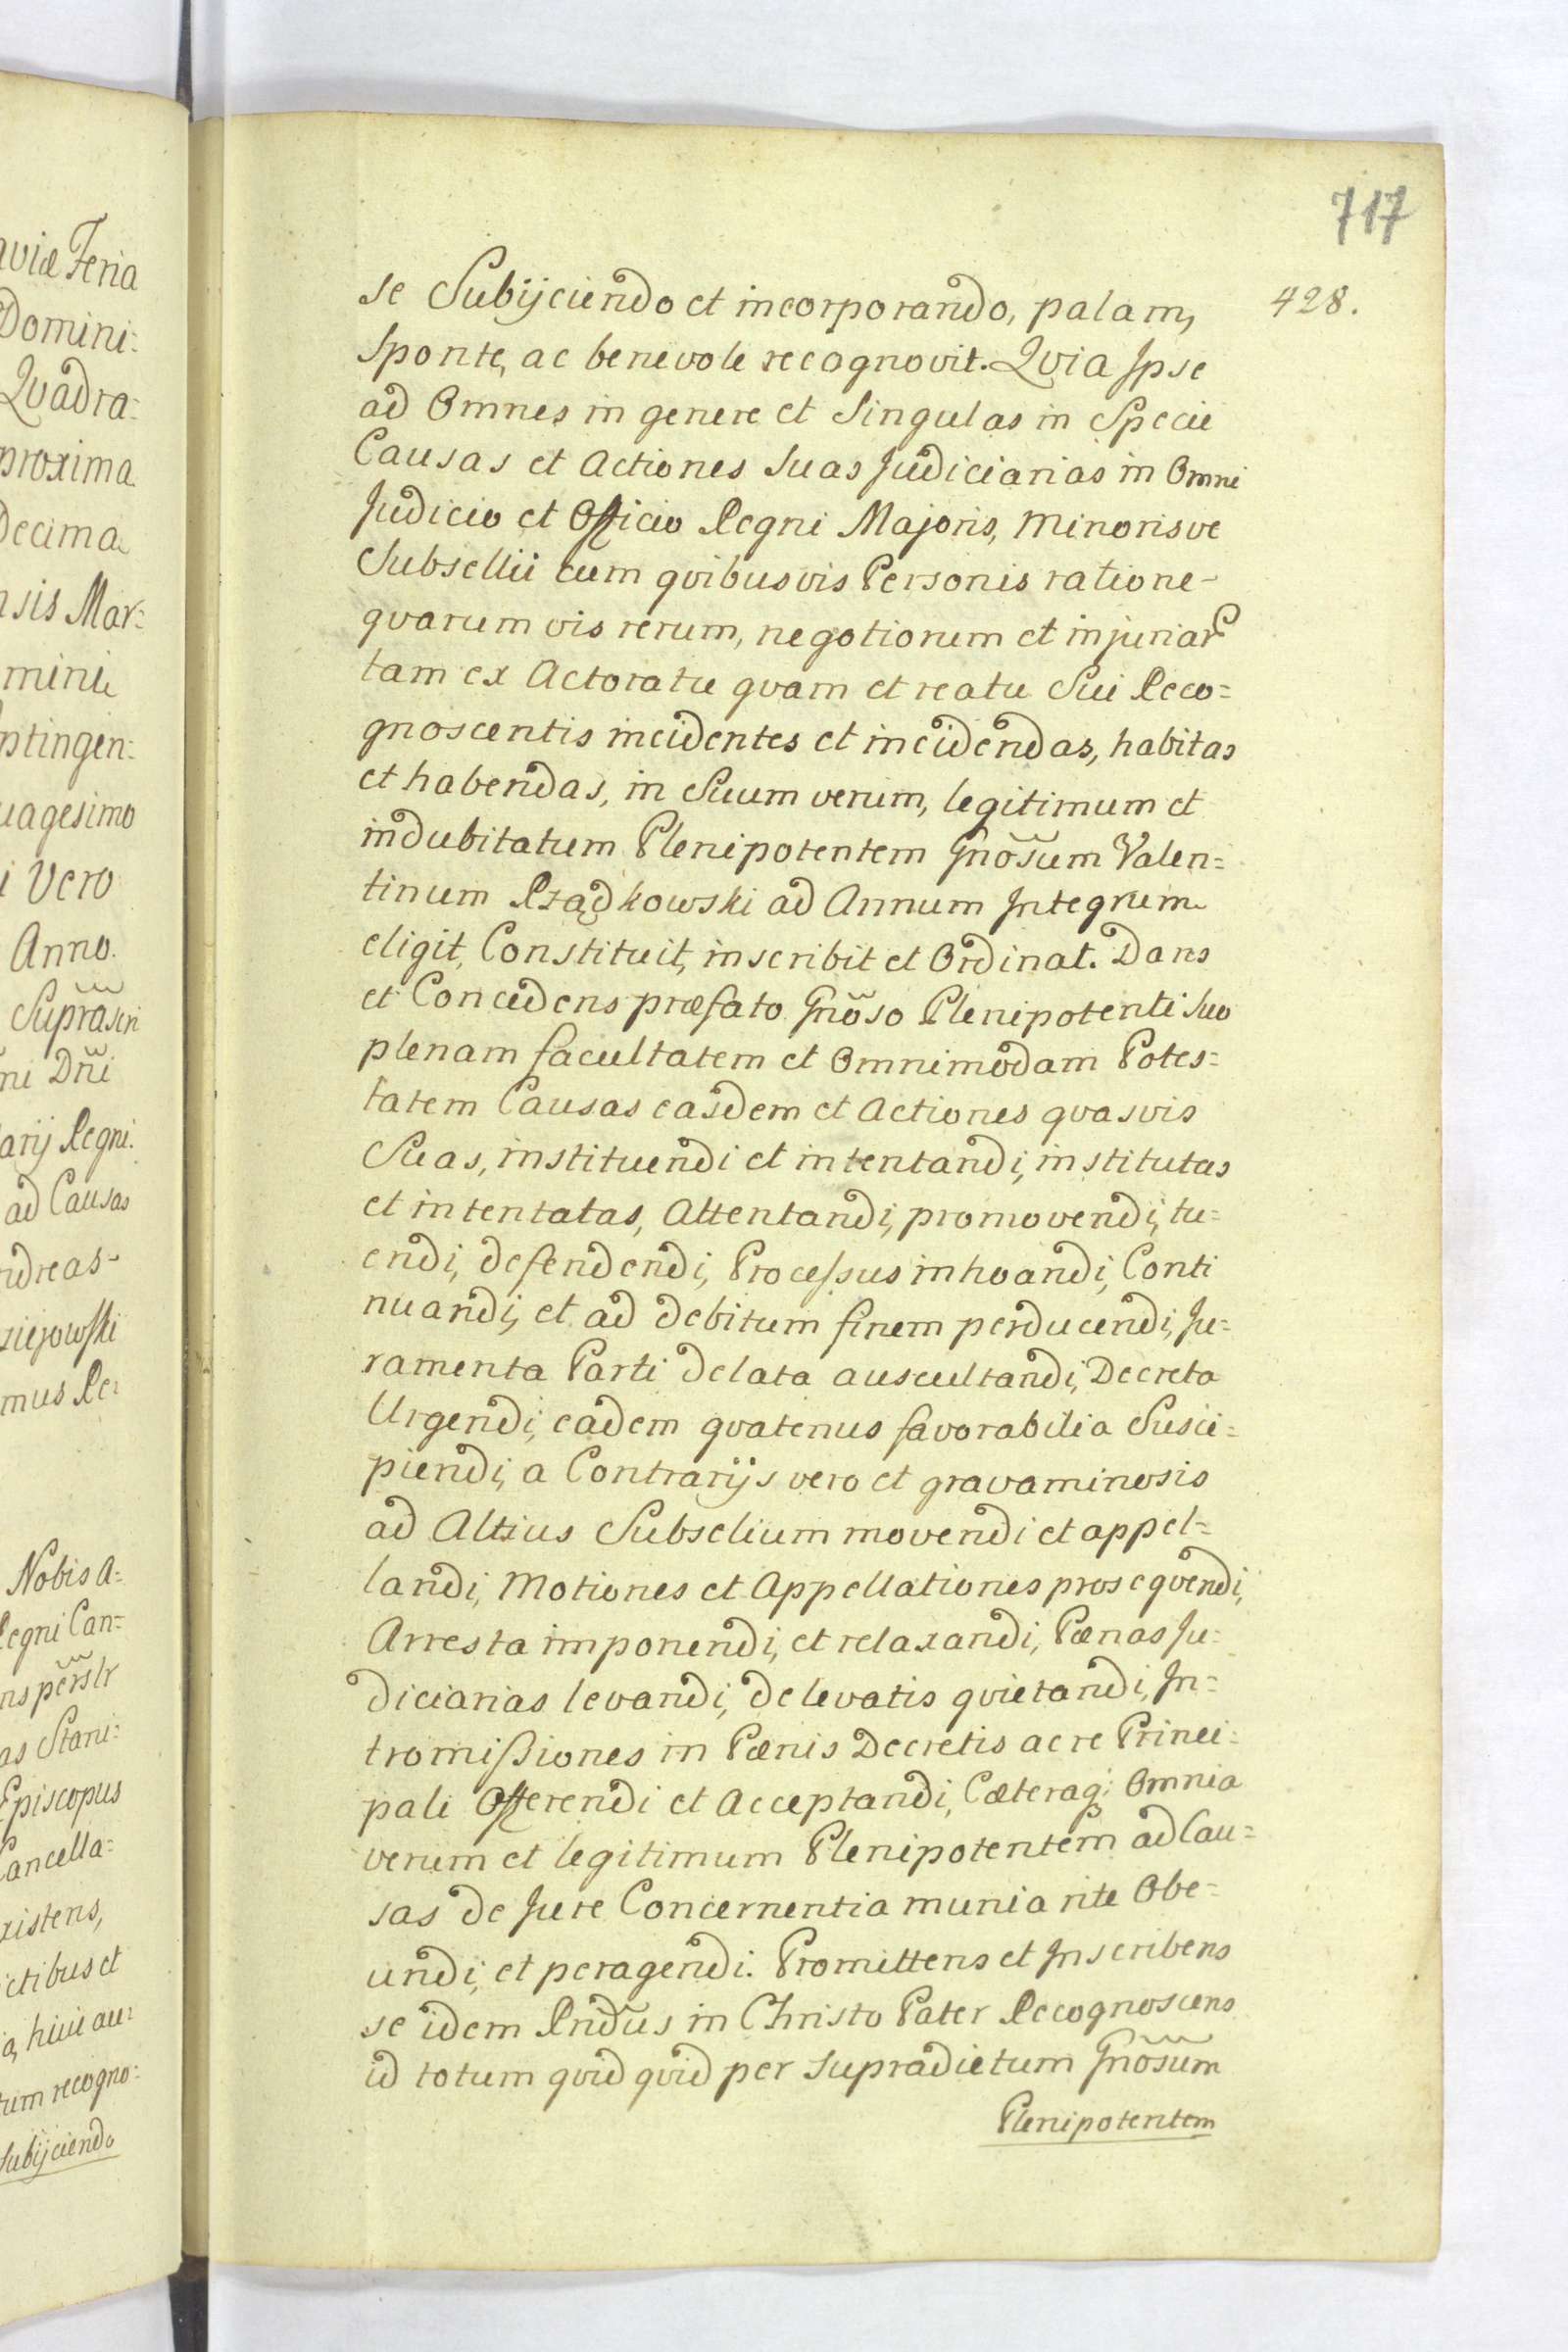 717
428.
se Subijciendo et incorporando, palam,
sponte, ac benevole recognovit. Qvia Ipse
ad Omnes in genere et singulas in Specie
Causas et Actiones suas Judiciarias in Omni
Judicio et Officio Regni Majoris, minorisve
Subsellii cum qvibusvis Personis ratione
qvarumvis rerum, negotiorum et injuriar
tam ex Actoratu qvam et reatu Sui Reco=
gnoscentis incidentes et incidendas, habitas
et habendas, in Suum verum, legitimum et
indubitatum Plenipotentem Gnõsum Valen=
tinum Rządkowski ad Annum Integrum
eligit, Constituit, inscribit et Ordinat. Dans
et Concedens præfato Gnõso Plenipotenti suo
plenam facultatem et Omnimodam Potes=
tatem Causas easdem et Actiones qvasvis
Suas, instituendi et intentandi, institutas
et intentatas, Attentandi, promovendi, tu=
endi, defendendi, Processus inhoandi, Conti
nuandi, et ad debitum finem perducendi, Ju=
ramenta Parti delata auscultandi, Decreta
Urgendi, eadem qvatenus favorabilia Susci=
piendi, a Contrarijs vero et gravaminosis
ad Altius Subselium movendi et appel=
landi, Motiones et Appellationes proseqvendi,
Arresta imponendi, et relaxandi, Pænas Ju=
diciarias levandi, de levatis qvietandi, In=
tromissiones in Pænis Decretis ac re Princi=
pali Offerendi et Acceptandi, Cæteraq; Omnia
verum et legitimum Plenipotentem ad Cau=
sas de Jure Concernentia munia rite Obe=
undi, et peragendi. Promittens et Inscribens
se idem Rndus in Christo Pater Recognoscens
id totum qvidqvid per supradictum Gnõsum
Plenipotentem
aviæ Feria
Domini=
Qvadra=
proxima
Decima
nsis Mar=
mini
ntingen=
uagesimo
i Vero
Anno.
Suprascri
ni Dñi
arij Regni
ad Causas
ndreas
ziejowski
mus Re=
Nobis a=
Regni Can=
ns perslr
as Stani=
Episcopus
Cancella=
xistens,
ctibus et
a, huic au=
tum recogno=
Subijciendo